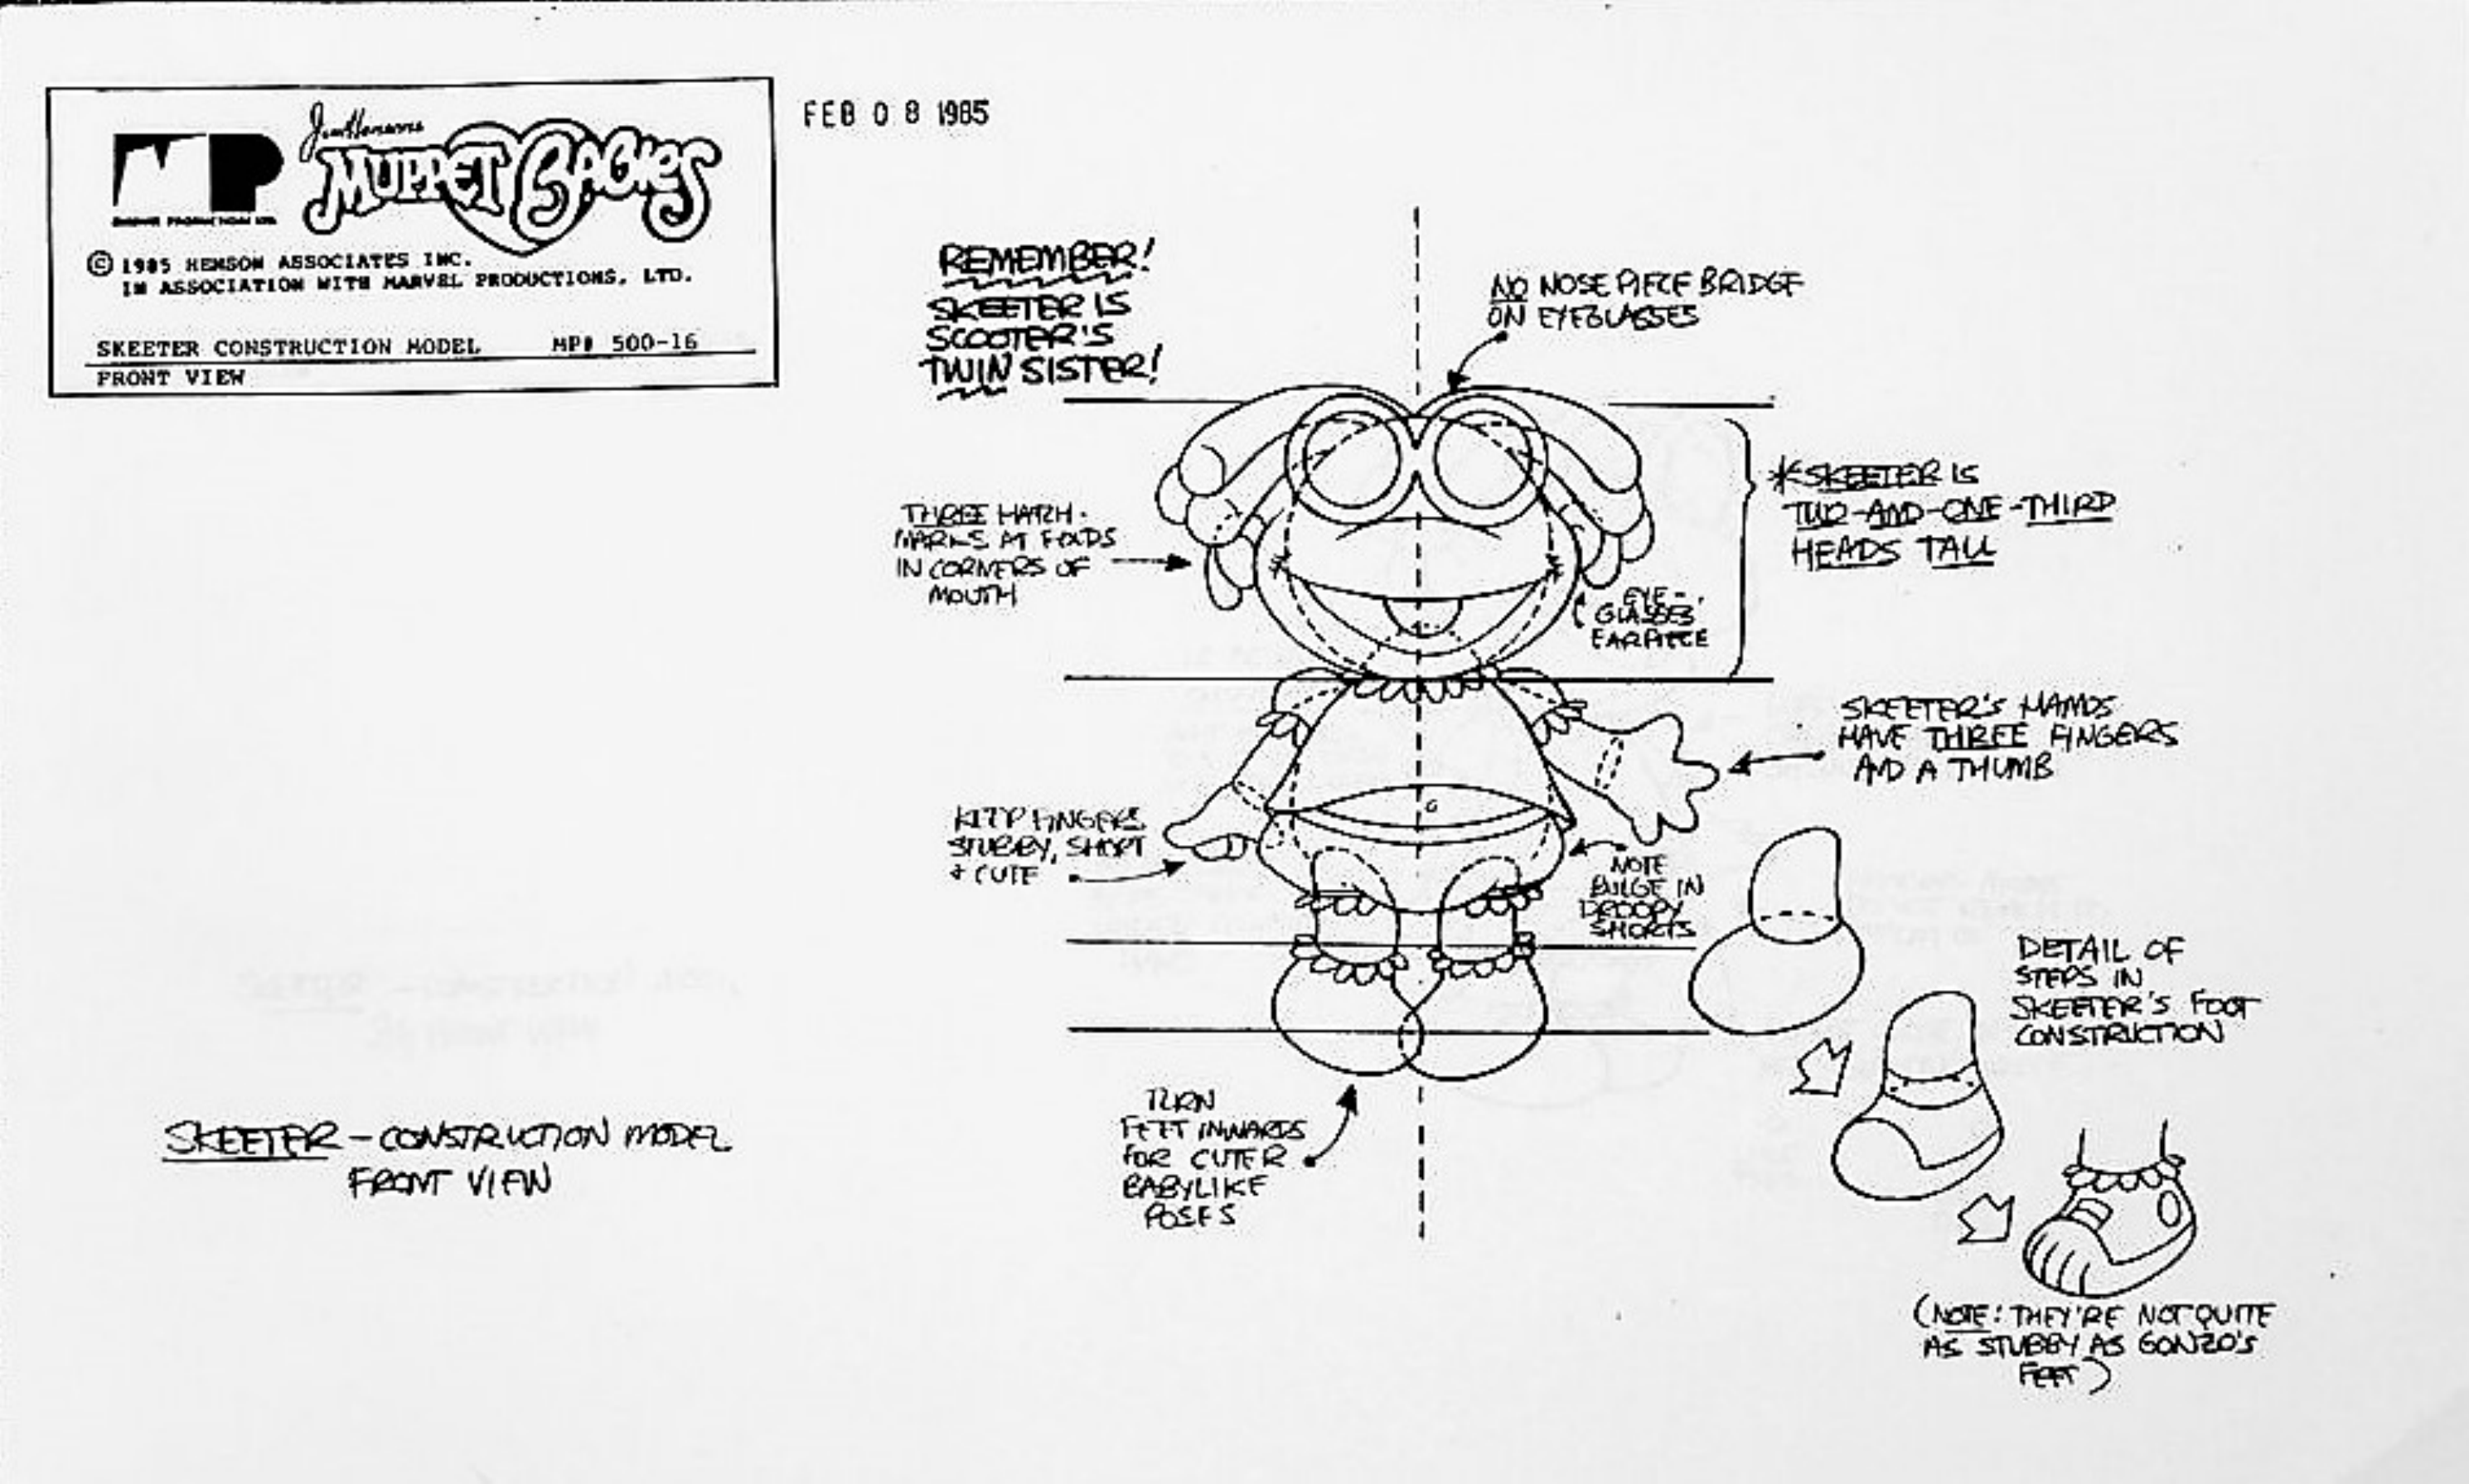 Jim Henson's
MUPPET BABIES
MP
© 1985 HENSON ASSOCIATES INC.
IN ASSOCIATION WITH MARVEL PRODUCTIONS, LTD.
SKEETER CONSTRUCTION MODEL MP# 500-16
FRONT VIEW
FEB 08 1985
REMEMBER!
SKEETER IS
SCOOTER'S
TWIN SISTER!
NO NOSE PIECE BRIDGE
ON EYEGLASSES
*SKEETER IS
TWO-AND-ONE-THIRD
HEADS TALL
THREE HATCH-
MARKS AT FOLDS
IN CORNERS OF
MOUTH
EYE-
GLASSES
EARPIECE
SKEETER'S HANDS
HAVE THREE FINGERS
AND A THUMB
KEEP FINGERS
STUBBY, SHORT
+ CUTE
NOTE
BULGE IN
DROOPY
SHORTS
DETAIL OF
STEPS IN
SKEETER'S FOOT
CONSTRUCTION
TURN
FEET INWARDS
FOR CUTER
BABYLIKE
POSES
SKEETER - CONSTRUCTION MODEL
FRONT VIEW
(NOTE: THEY'RE NOT QUITE
AS STUBBY AS GONZO'S
FEET)